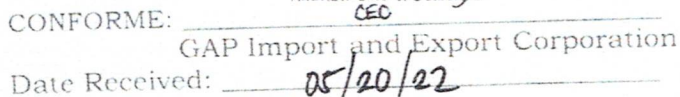 CONFORME: CEC
GAP Import and Export Corporation
Date Received: 05/20/22